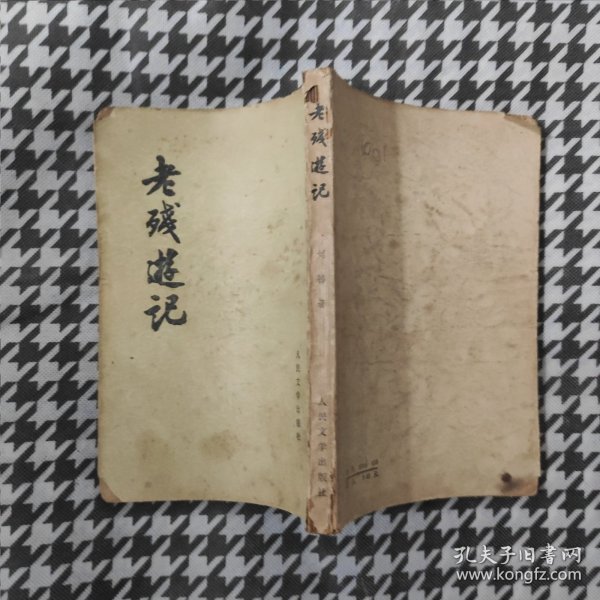 老残遊记
人民文学出版社
老残遊记
著
人民文学出版社
孔夫子旧书网
www.kongfz.com